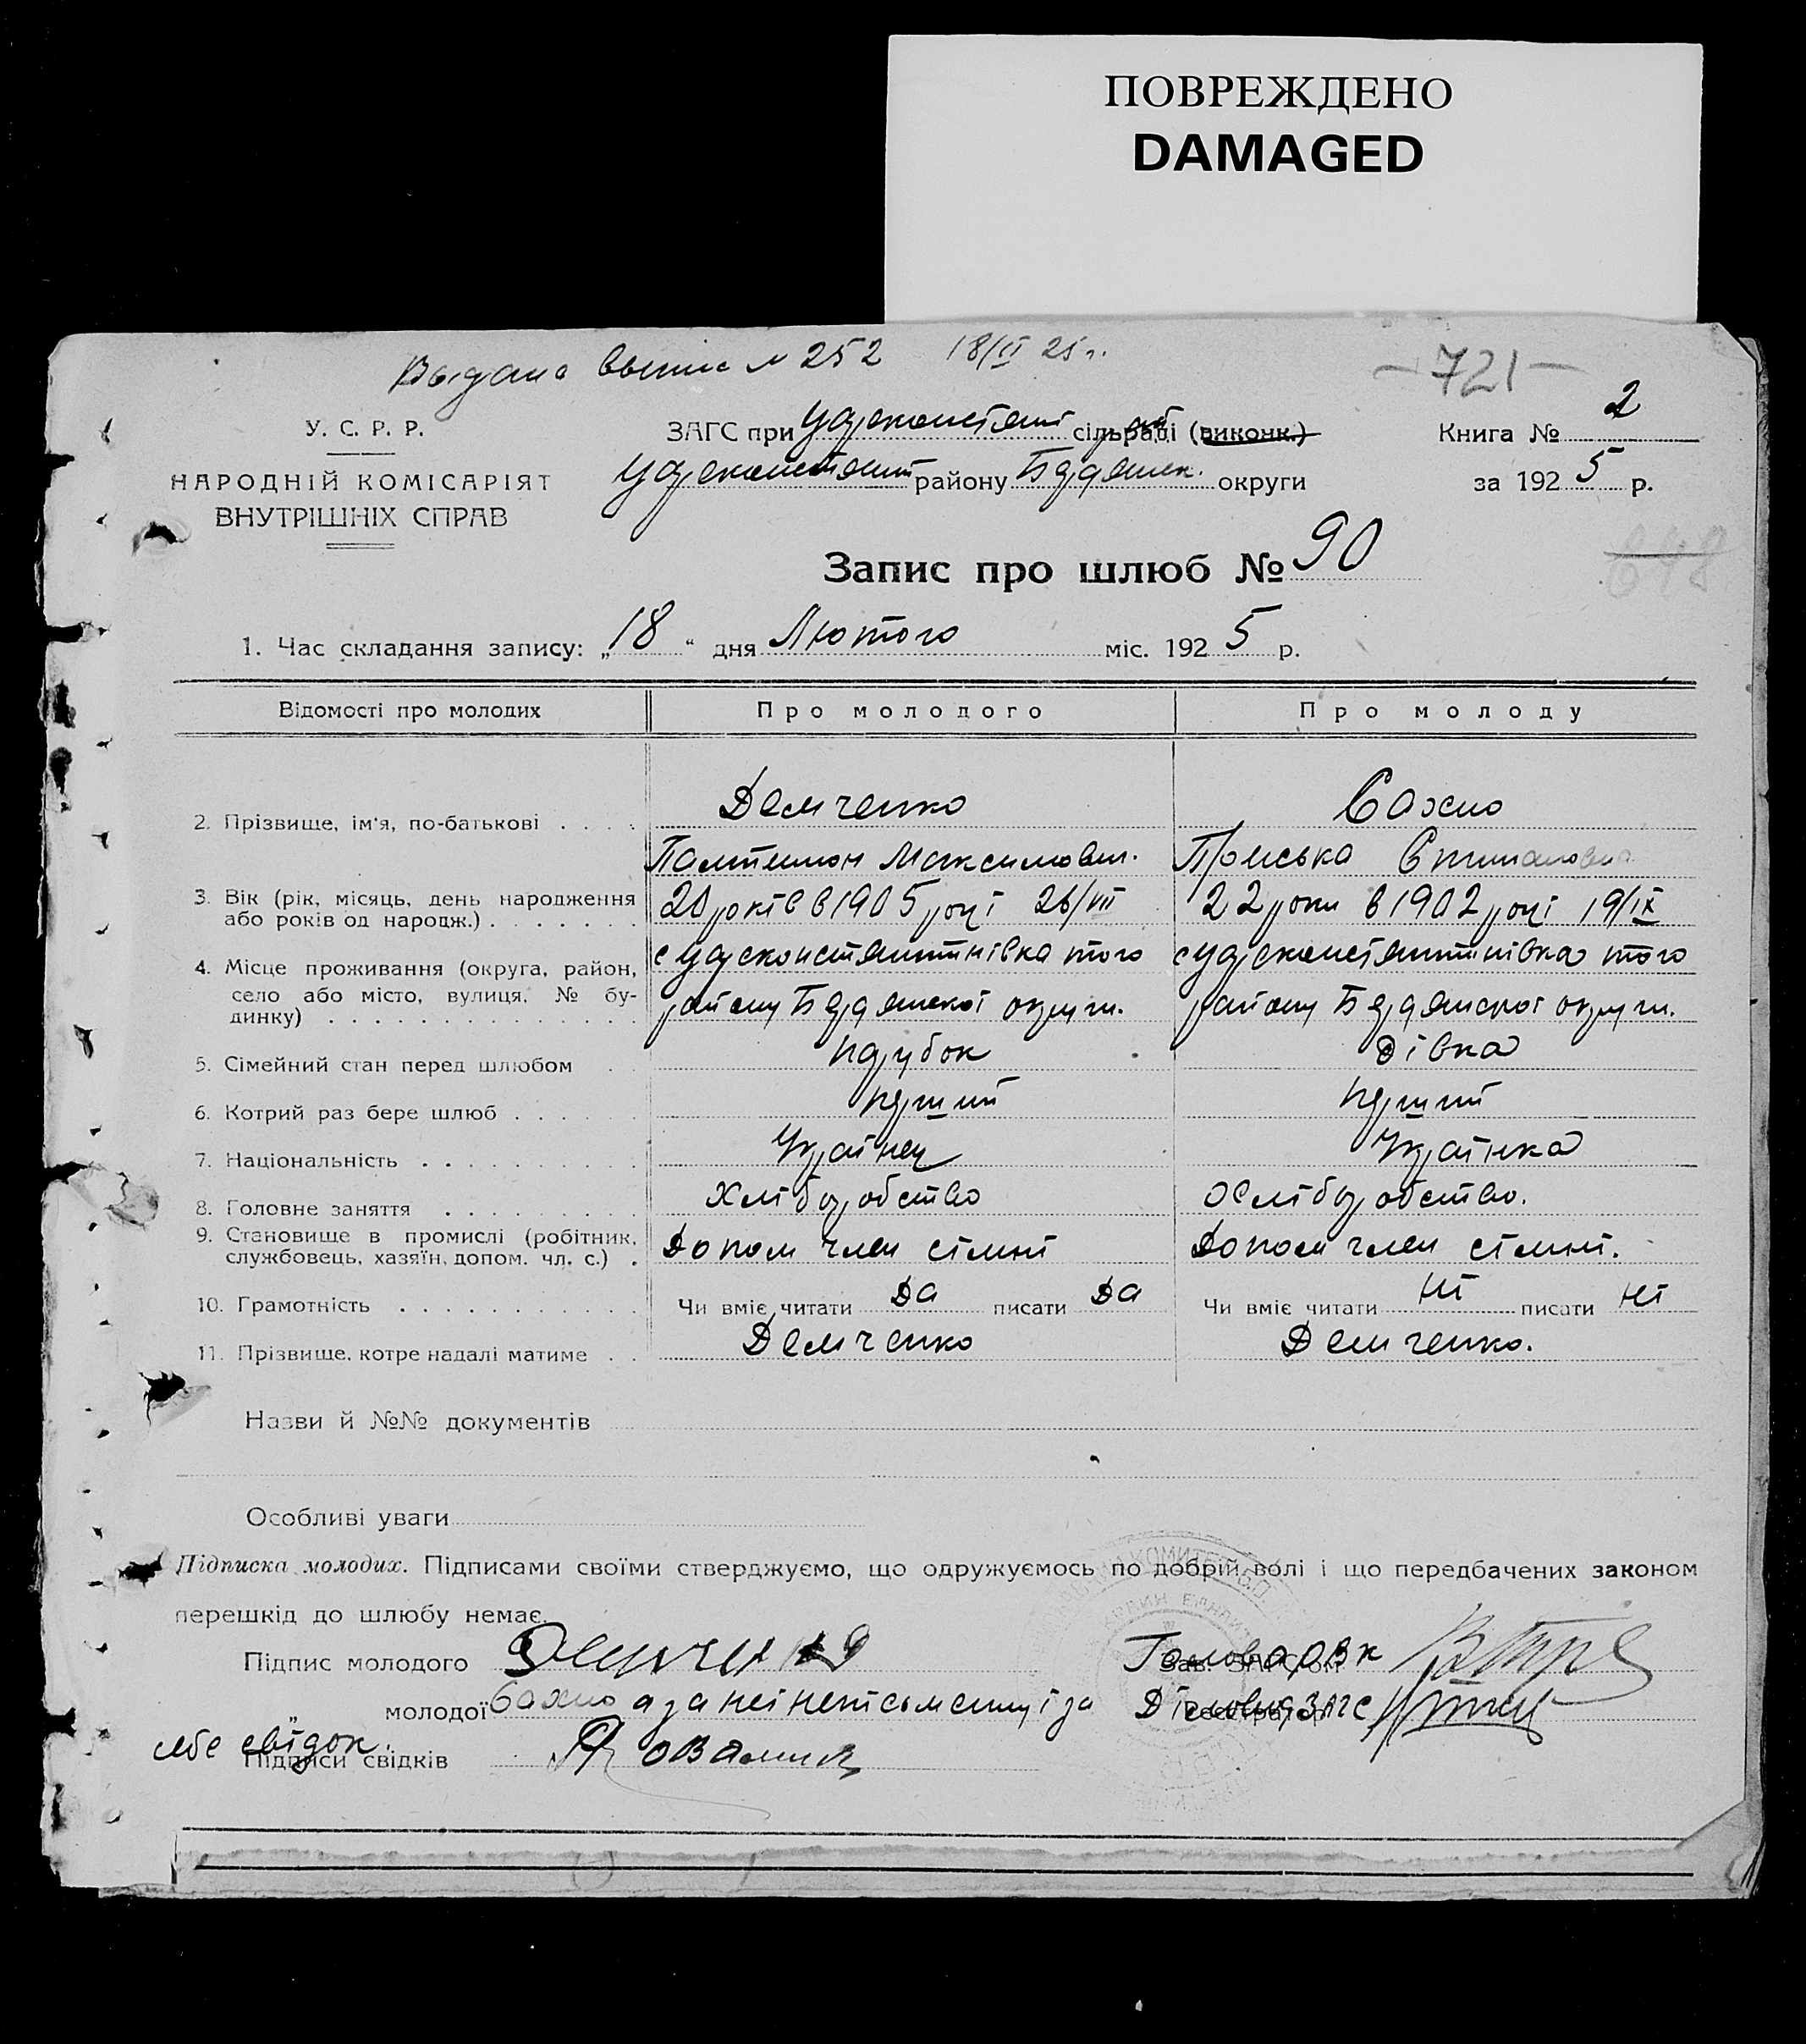 ПОВРЕЖДЕНО
DAMAGED
Выдана выпис № 252 18/II 25 г.
— 721 —
У. С. Р. Р.
ЗАГС при Цареконстянт сільраді (виконк.)
Книга № 2
НАРОДНІЙ КОМІСАРІЯТ
ВНУТРІШНІХ СПРАВ
Цареконстянт району Бердянск. округи
за 1925 р.
Запис про шлюб № 90
648
1. Час складання запису: „18“ дня Лютого міс. 1925 р.
Відомості про молодих Про молодого Про молоду
2. Прізвище, ім'я, по-батькові . . . . Демченко Сахно
Пантилимон Максимович.Приська Степановна
3. Вік (рік, місяць, день народження або років од народж.) . . . . . . . 20 років в 1905 році 26/VII 22 роки в 1902 році 19/IX
4. Місце проживання (округа, район, село або місто, вулиця, № будинку) . . . . с Царсконстянтинівка того с Царсконстянтинівка того
району Бердянської округи. району Бердянської округи.
5. Сімейний стан перед шлюбом . . парубок Дівка
6. Котрий раз бере шлюб . . . . перший перший
7. Національність . . . . . . . . . . Українец Українка
8. Головне заняття . . . . . . . . . Хліборобство Хліборобство.
9. Становище в промислі (робітник, службовець, хазяїн, допом. чл. с.) . Допом член сімні Допом член сімні.
10. Грамотність . . . . . . . . . . . Чи вміє читати Да писати Да Чи вміє читати Ні писати Ні
11. Прізвище, котре надалі матиме . . Демченко Демченко.
Назви й №№ документів
Особливі уваги
Підписка молодих. Підписами своїми стверджуємо, що одружуємось по добрій волі і що передбачених законом
перешкід до шлюбу немає.
Підпис молодого Демченко Голова РВК
„ молодої Сахно а за неї неписьменну і за Діловод ЗАГС
себе свідок.
Підписи свідків